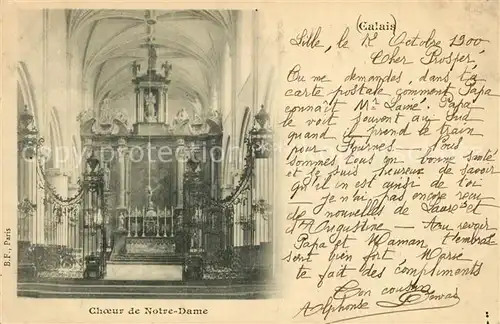 (Calais)
Lille, le 12 Octobre 1900
Cher Prosper,
Tu me demandes, dans ta
carte postale comment Papa
connaît Mr Lainé. Papa
le voit souvent au Sud
quand il prend le train
pour Fournes — Nous
sommes tous en bonne santé
et je suis heureux de savoir
qu'il en est ainsi de toi
je n'ai pas encore reçu
de nouvelles de et
d'Augustine — Au revoir
Papa et Maman t'embras
sent bien fort. Marie
te fait des compliments
Ton cousin
Alphonse
B.F., Paris
Chœur de Notre-Dame